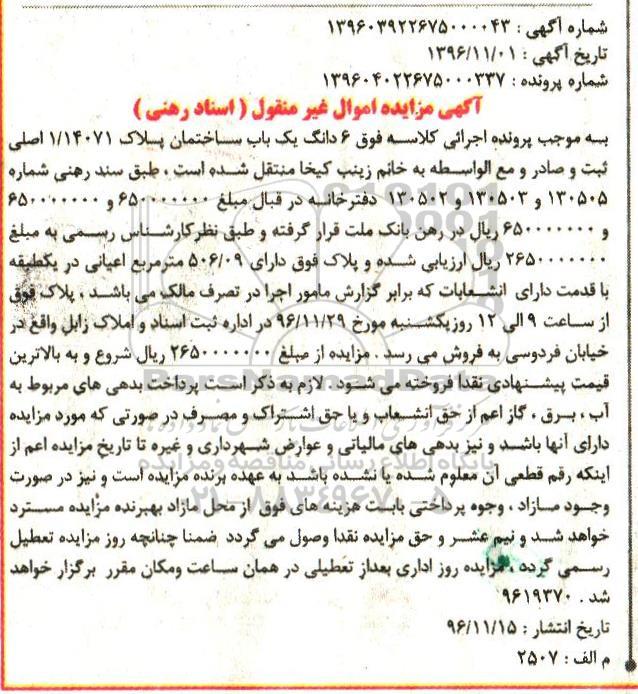 شماره آگهی : ۱۳۹۶۰۳۹۲۲۶۷۵۰۰۰۰۴۳
تاریخ آگهی : ۱۳۹۶/۱۱/۰۱
شماره پرونده : ۱۳۹۶۰۴۰۲۲۶۷۵۰۰۰۳۳۷
آگهی مزایده اموال غیر منقول ( اسناد رهنی )
به موجب پرونده اجرائی کلاسه فوق ۶ دانگ یک باب ساختمان پلاک ۱/۱۴۰۷۱ اصلی
ثبت و صادر و مع الواسطه به خانم زینب کیخا منتقل شده است ، طبق سند رهنی شماره
۱۳۰۵۰۵ و ۱۳۰۵۰۳ و ۱۳۰۵۰۲ دفترخانه در قبال مبلغ ۶۵۰۰۰۰۰۰۰۰ و ۶۵۰۰۰۰۰۰۰۰
و ۶۵۰۰۰۰۰۰۰۰ ریال در رهن بانک ملت قرار گرفته و طبق نظر کارشناس رسمی به مبلغ
۲۶۵۰۰۰۰۰۰۰۰ ریال ارزیابی شده و پلاک فوق دارای ۵۰۶/۰۹ مترمربع اعیانی در یکطبقه
با قدمت دارای انشعابات که برابر گزارش مامور اجرا در تصرف مالک می باشد ، پلاک فوق
از ساعت ۹ الی ۱۲ روز یکشنبه مورخ ۹۶/۱۱/۲۹ در اداره ثبت اسناد و املاک زابل واقع در
خیابان فردوسی به فروش می رسد . مزایده از مبلغ ۲۶۵۰۰۰۰۰۰۰۰ ریال شروع و به بالاترین
قیمت پیشنهادی نقدا فروخته می شود . لازم به ذکر است پرداخت بدهی های مربوط به
آب ، برق ، گاز اعم از حق انشعاب و یا حق اشتراک و مصرف در صورتی که مورد مزایده
دارای آنها باشد و نیز بدهی های مالیاتی و عوارض شهرداری و غیره تا تاریخ مزایده اعم از
اینکه رقم قطعی آن معلوم شده یا نشده باشد به عهده برنده مزایده است و نیز در صورت
وجود مازاد ، وجوه پرداختی بابت هزینه های فوق از محل مازاد بهبرنده مزایده مسترد
خواهد شد و نیم عشر و حق مزایده نقدا وصول می گردد ضمنا چنانچه روز مزایده تعطیل
رسمی گردد ، مزایده روز اداری بعداز تعطیلی در همان ساعت ومکان مقرر برگزار خواهد
شد . ۹۶۱۹۳۷۰
تاریخ انتشار : ۹۶/۱۱/۱۵
م الف : ۲۵۰۷
ParsNamadData
پایگاه اطلاع رسانی مناقصه و مزایده
۰۲۱-۸۸۳۴۹۶۷۰-۵